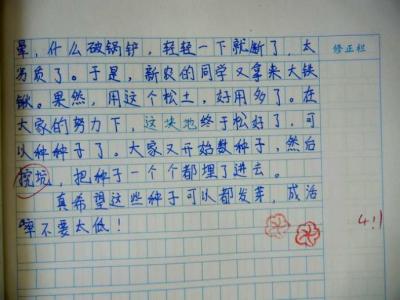 晕，什么破锅铲，轻轻一下就断了，太
劣质了。于是，新农的同学又拿来大铁
锹。果然，用这个松土，好用多了。在
大家的努力下，这块地终于松好了，可
以种种子了。大家又开始数种子，然后
挖坑，把种子一个个都埋了进去。
真希望这些种子可以都发芽，成活
率不要太低！
修正栏
4.1